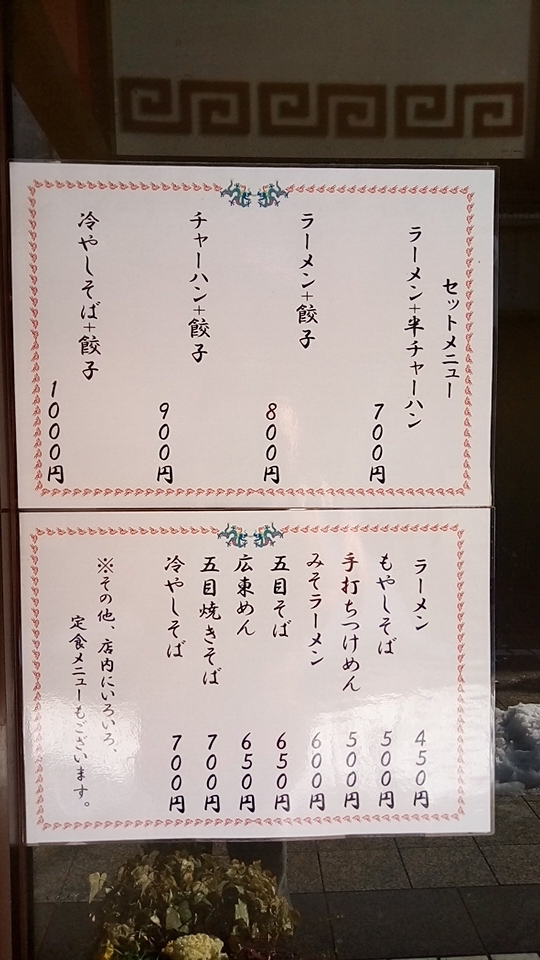 セットメニュー
ラーメン+半チャーハン
700円
ラーメン+餃子
800円
チャーハン+餃子
900円
冷やしそば+餃子
1000円
ラーメン 450円
もやしそば 500円
手打ちつけめん 500円
みそラーメン 600円
五目そば 650円
広東めん 650円
五目焼きそば 700円
冷やしそば 700円
※その他、店内にいろいろ、
定食メニューもございます。